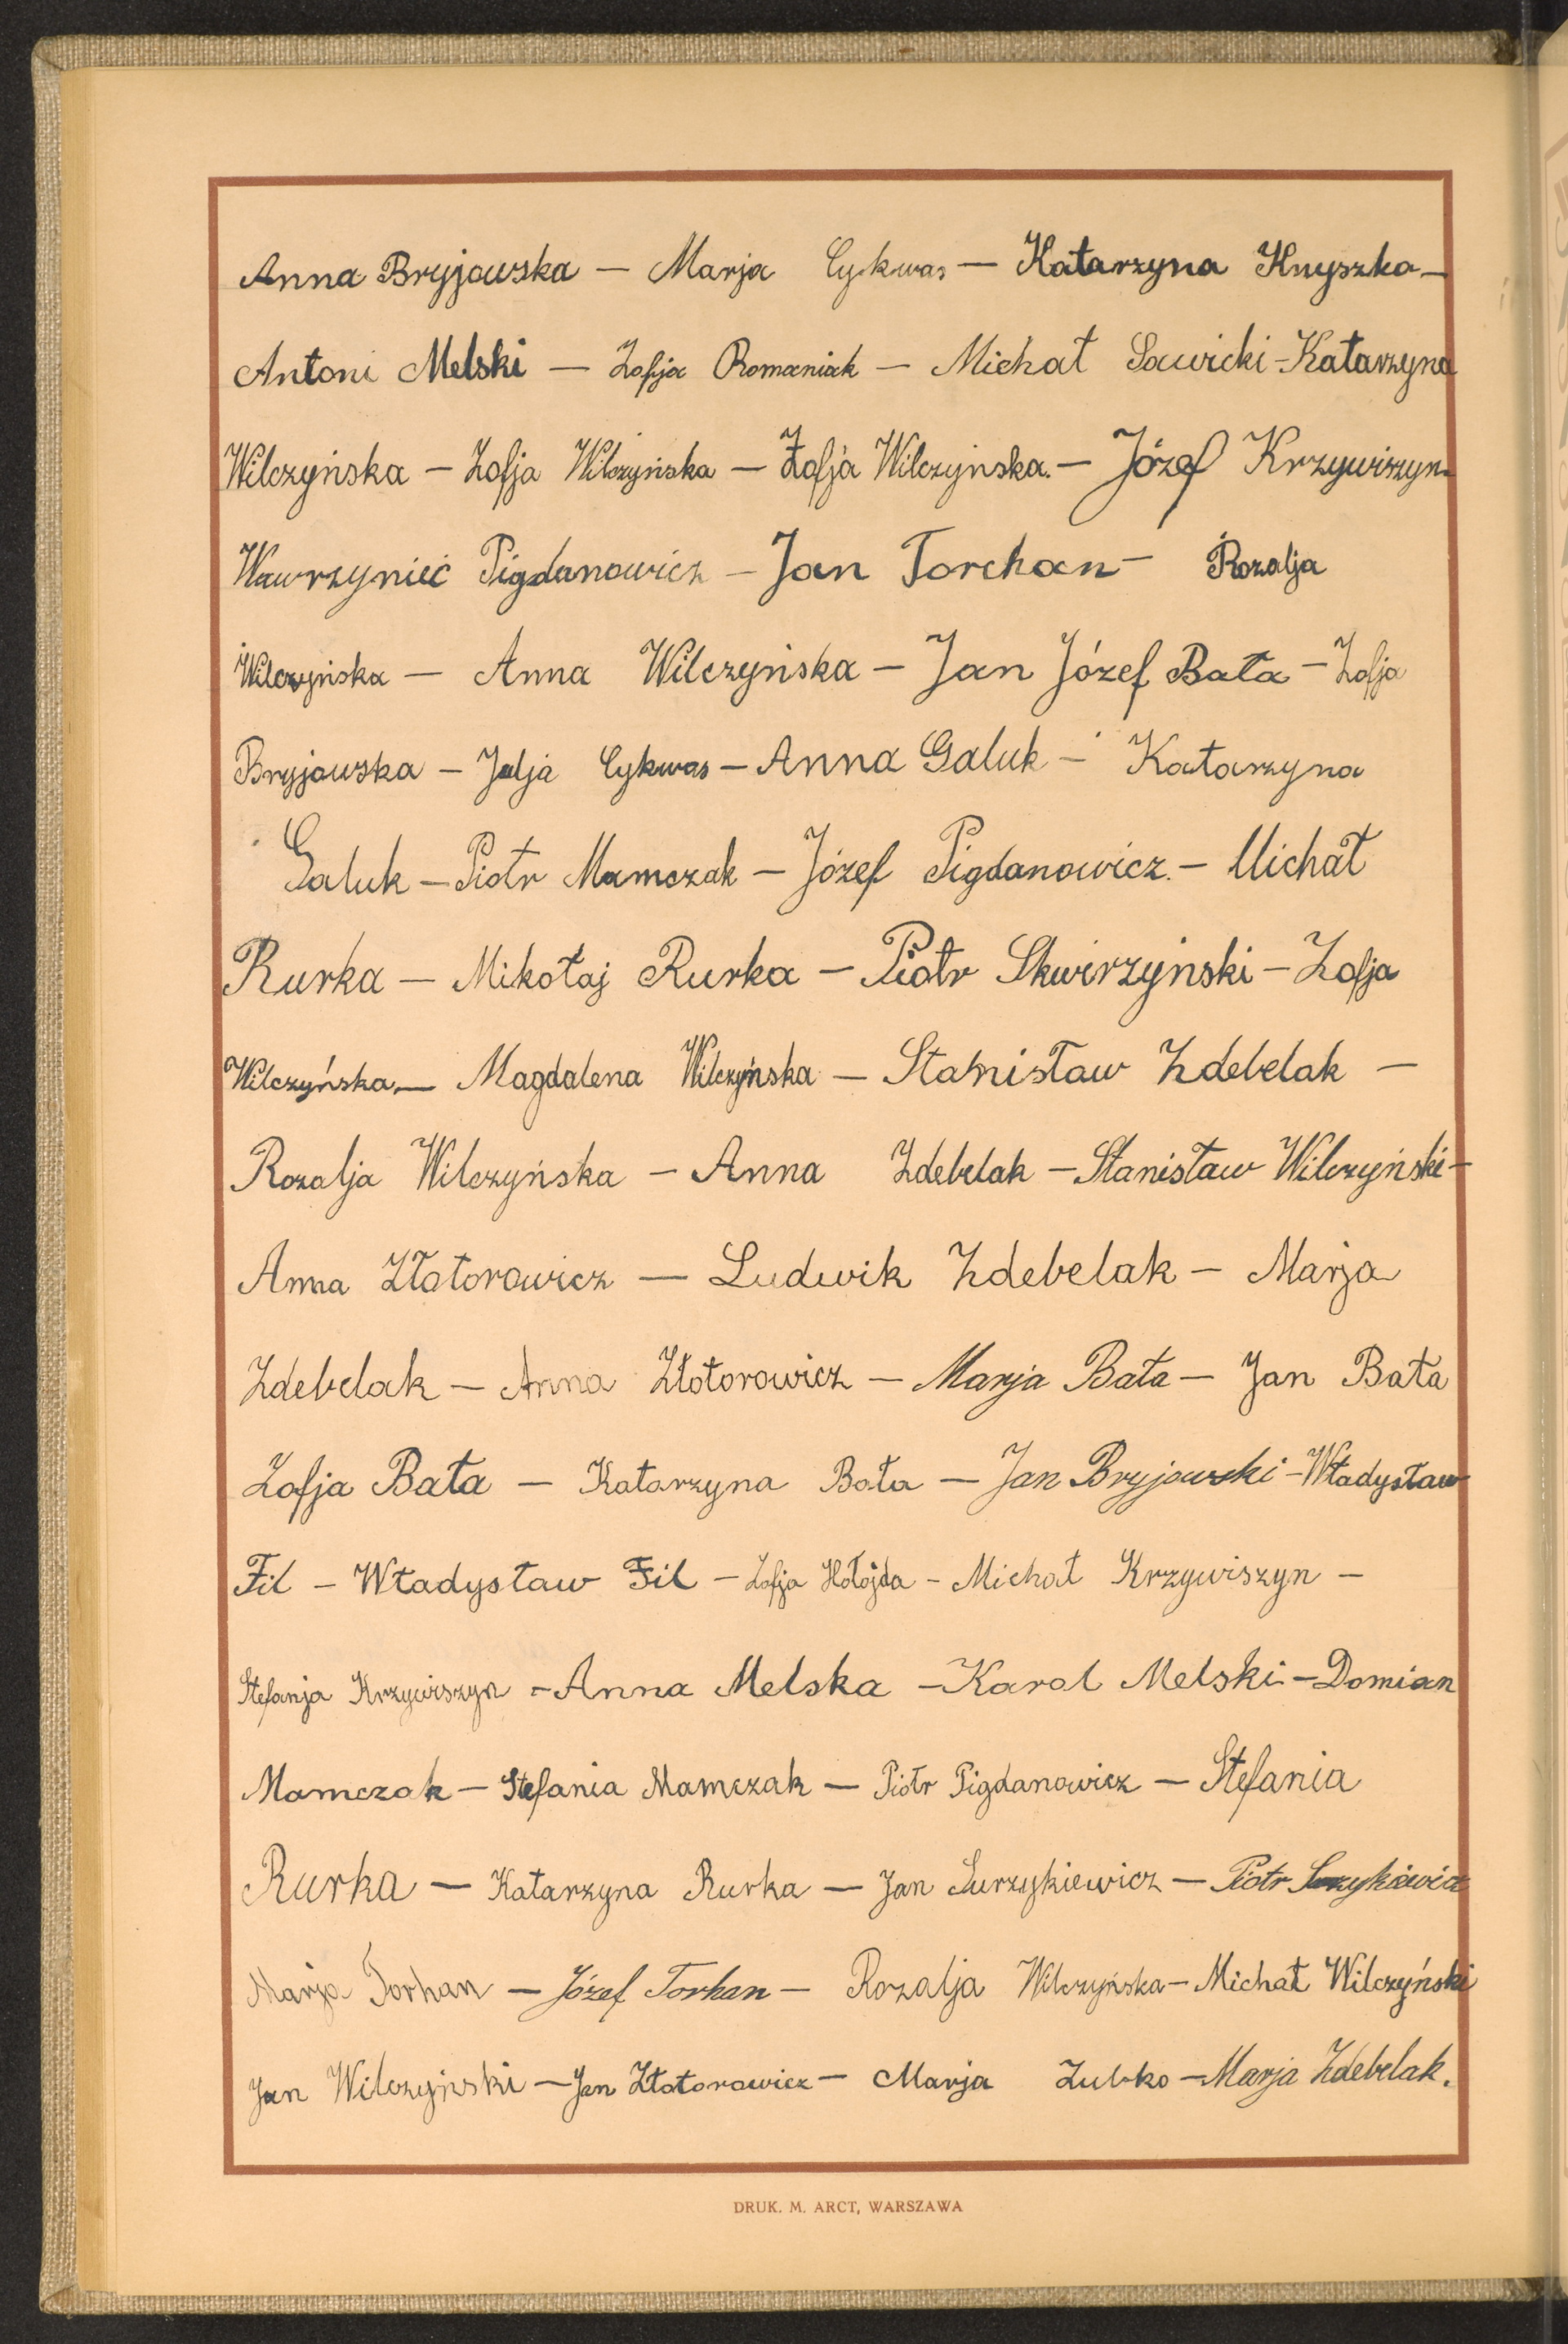 Anna Bryjowska – Marja Cykwas – Katarzyna Knyszka –
Antoni Melski – Zofja Romaniak – Michał Sawicki – Katarzyna
Wilczyńska – Zofja Wilczyńska – Zofja Wilczyńska. – Józef Krzywiszyn –
Wawrzynieć Pigdanowicz – Jan Torchan – Rozalja
Wilczyńska – Anna Wilczyńska – Jan Józef Bata – Zofja
Bryjowska – Julja Cykwas – Anna Galuk – Katarzyna
Galuk – Piotr Mamczak – Józef Pigdanowicz. – Michał
Rurka – Mikołaj Rurka – Piotr Skwirzyński – Zofja
Wilczyńska – Magdalena Wilczyńska – Stanisław Zdebelak –
Rozalja Wilczyńska – Anna Zdebelak – Stanisław Wilczyński –
Anna Złotorowicz – Ludwik Zdebelak – Marja
Zdebelak – Anna Złotorowicz – Marja Bata – Jan Bata
Zofja Bata – Katarzyna Bata – Jan Bryjowski – Władysław
Fil – Władysław Fil – Zofja Hołojda – Michał Krzywiszyn –
Stefanja Krzywiszyn – Anna Melska – Karol Melski – Domian
Mamczak – Stefania Mamczak – Piotr Pigdanowicz – Stefania
Rurka – Katarzyna Rurka – Jan Surzykiewicz – Piotr Surzykiewicz
Marja Torhan – Józef Torhan – Rozalja Wilczyńska – Michał Wilczyński
Jan Wilczyński – Jan Złotorowicz – Marja Zubko – Marja Zdebelak.
DRUK. M. ARCT, WARSZAWA